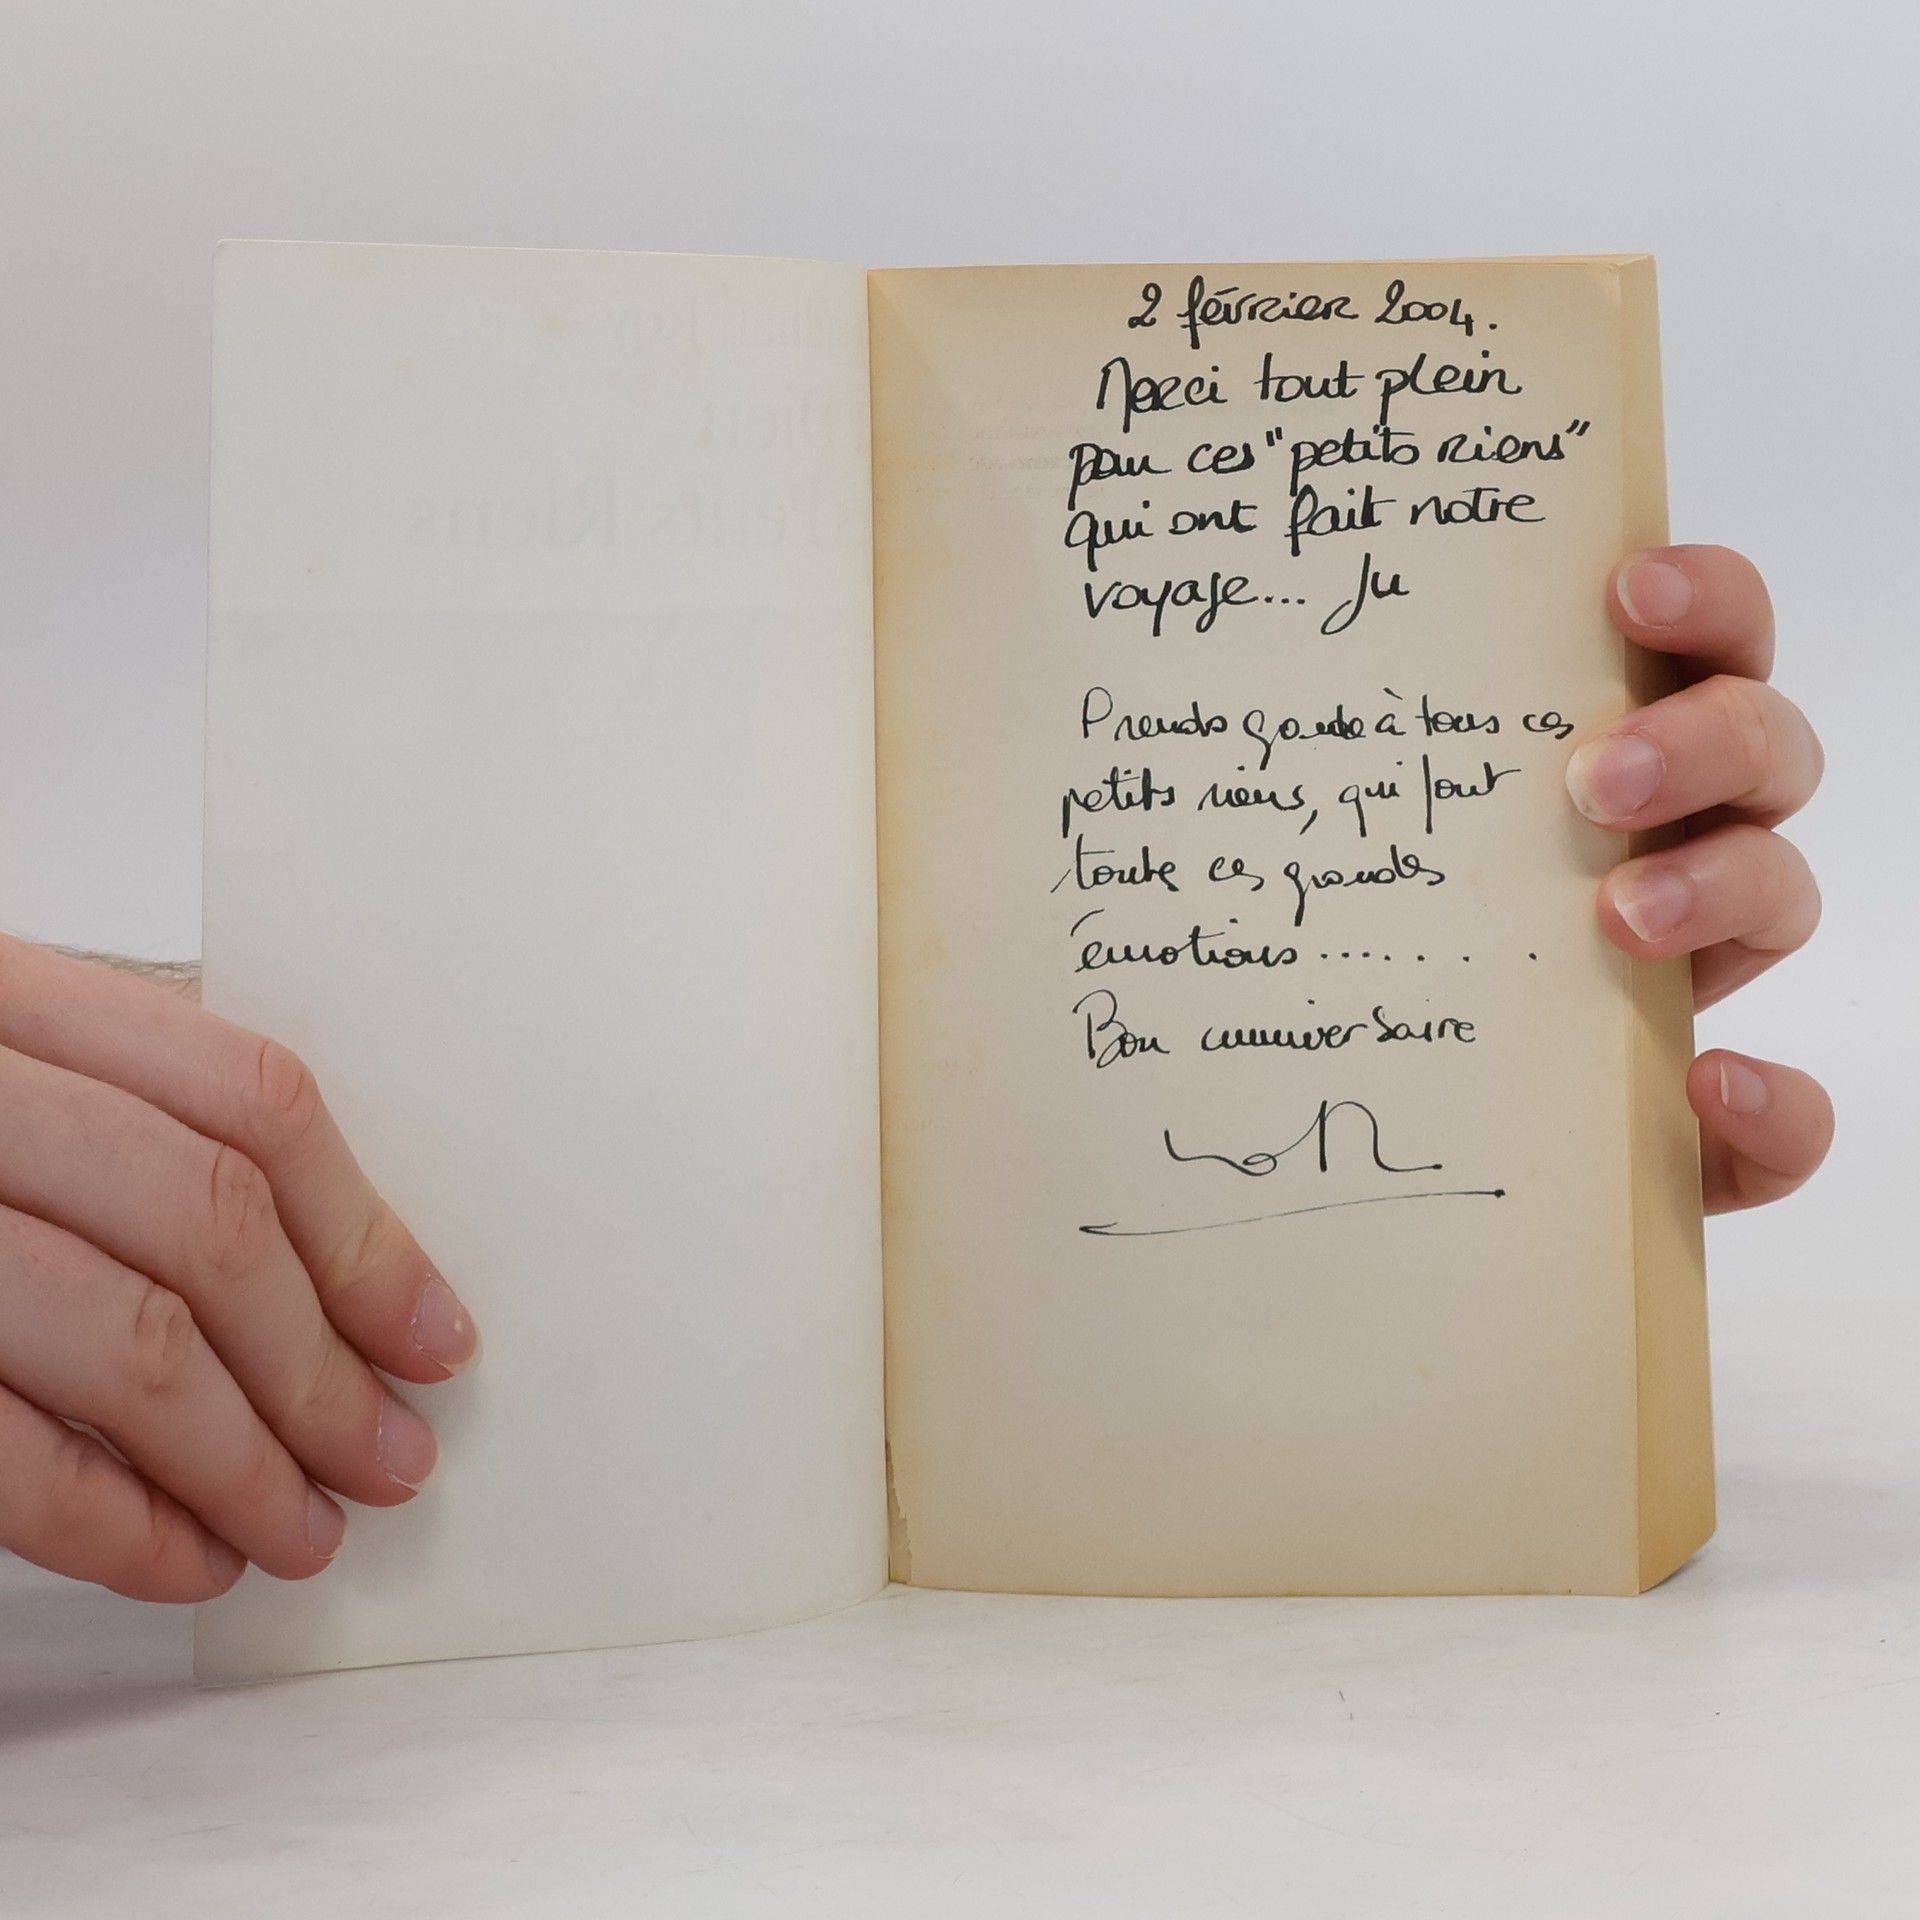 2 février 2004.
Merci tout plein
pour ces "petits riens"
qui ont fait notre
voyage... Ju
Prends garde à tous ces
petits riens, qui font
toute ces grandes
émotions........
Bon anniversaire